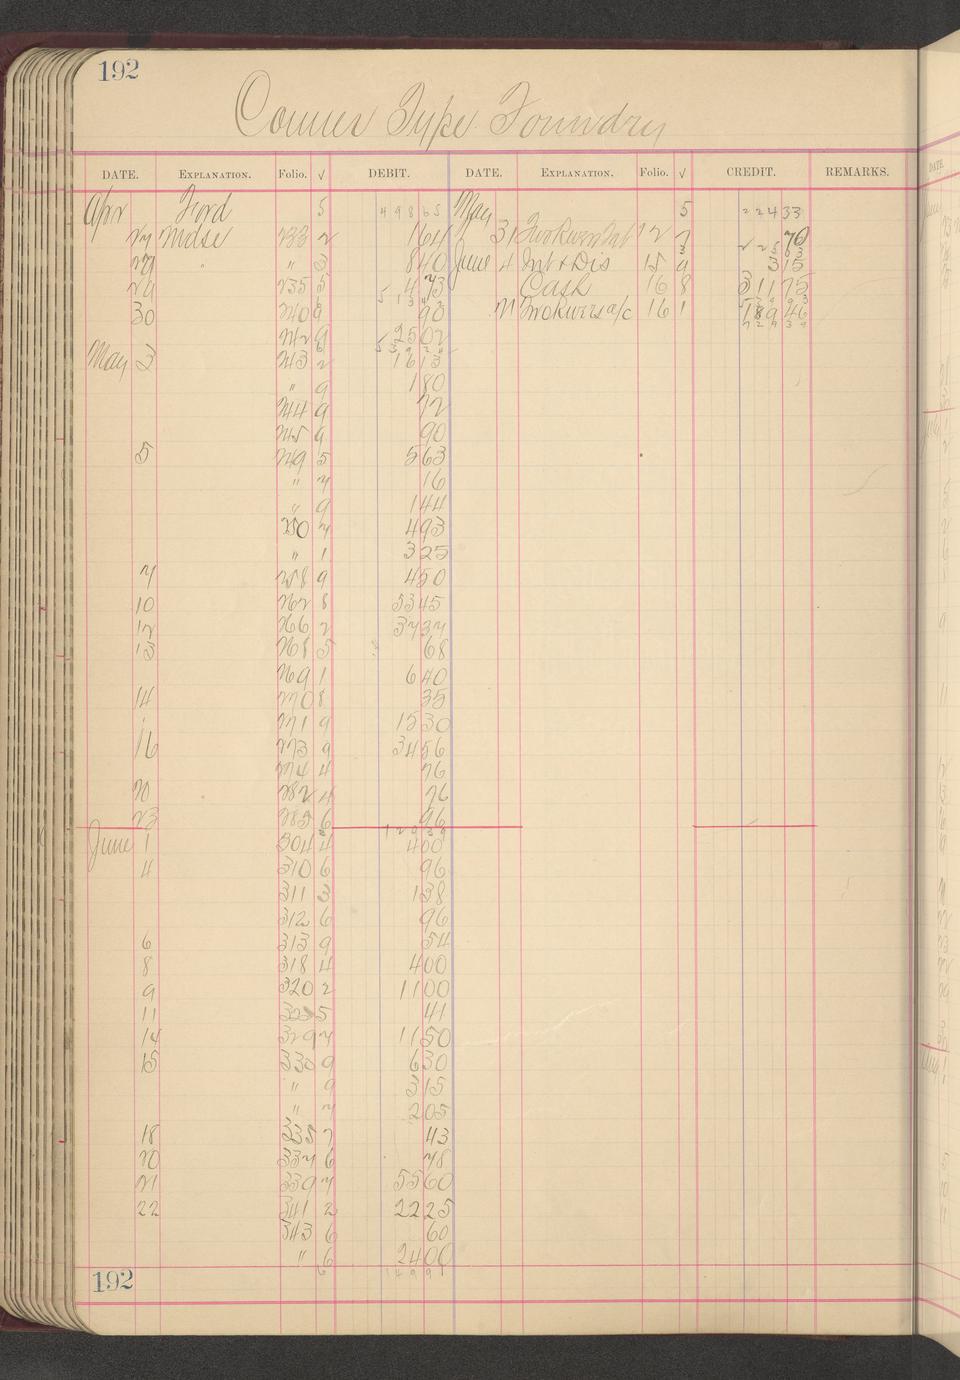 192
Conner Type Foundry
DATE. EXPLANATION. Folio. √ DEBIT. DATE. EXPLANATION. Folio. √ CREDIT. REMARKS.
Apr Ford 5 49865 May 5 22433
27 Mdse 233 2 164 31 Int 12 7 76
29 " " 3 840 June 4 Int & Dis 15 9 315
29 235 5 473 Cash 16 8 31175
30 240 9 90 21 a/c 16 1 18946
242 9 2502
May 3 243 2 1613
" 9 180
244 9 72
245 9 90
5 249 5 563
" 7 16
" 9 144
250 7 493
" 1 325
7 258 9 450
10 262 8 5345
12 266 2 3737
13 268 5 68
269 1 640
14 270 8 35
" 271 9 1530
16 273 9 3456
274 4 76
20 282 4 76
23 285 6 96
June 1 304 4 400
4 310 6 96
311 3 138
312 6 96
6 313 9 54
8 318 4 400
9 320 2 1100
11 5 41
14 329 7 1150
15 330 9 630
" 9 315
" 7 205
18 335 7 43
20 337 6 78
21 339 7 5560
22 341 2 2225
343 6 60
" 6 2400
192